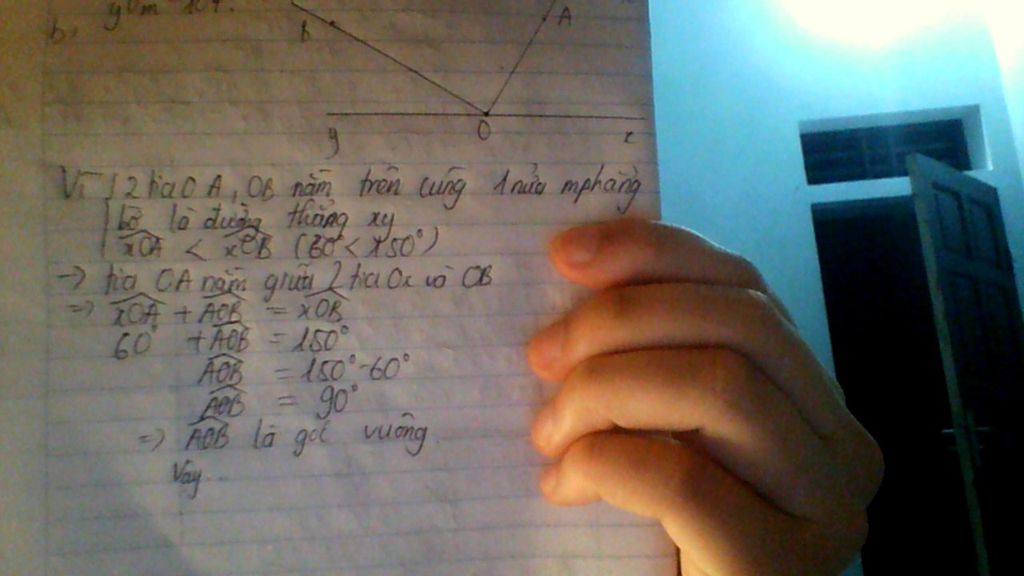 yOm = 104°.
b,
A
b
y
O
x
Vì { 2 tia OA, OB nằm trên cùng 1 nửa mphẳng
bờ là đường thẳng xy
xOA < xOB (60° < 150°)
→ tia OA nằm giữa 2 tia Ox và OB
=> xOA + AOB = xOB
60° + AOB = 150°
AOB = 150° - 60°
AOB = 90°
=> AOB là góc vuông.
Vậy...